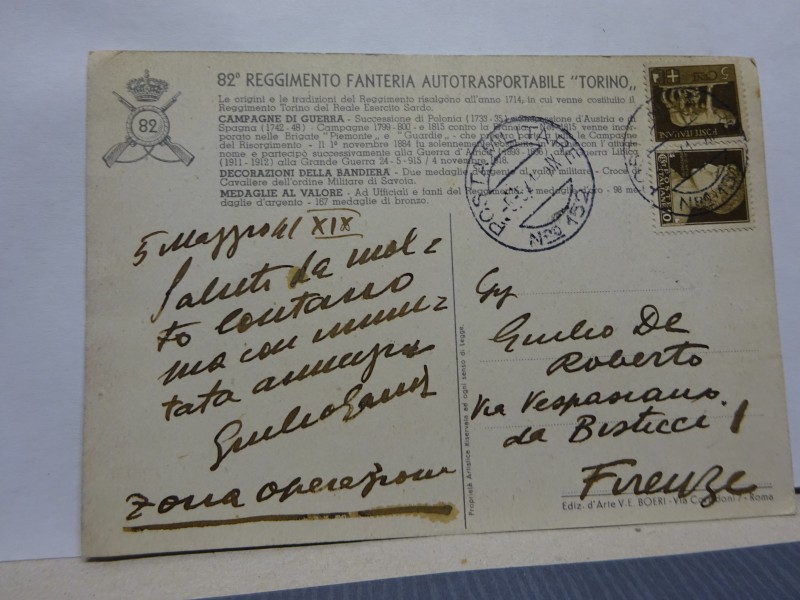 82
82° REGGIMENTO FANTERIA AUTOTRASPORTABILE "TORINO„
Le origini e le tradizioni del Reggimento risalgono all'anno 1714, in cui venne costituito il
Reggimento Torino del Reale Esercito Sardo.
CAMPAGNE DI GUERRA - Successione di Polonia (1733-35) d'Austria e di
Spagna (1742-48) - Campagne 1799-800 - e 1815 contro la 1815 venne incor-
porato nelle Brigate "Piemonte„ e "Guardie„ che prese parte le Campagne
del Risorgimento - Il 1° novembre 1884 fu solennemente con l'attuale
nome e partecipò successivamente alla Guerra d'Africa 1896) Guerra Libica
(1911-1912) alla Grande Guerra 24-5-915 / 4 novembre 18.
DECORAZIONI DELLA BANDIERA - Due medaglie argento al valor militare - Croce di
Cavaliere dell'ordine Militare di Savoia.
MEDAGLIE AL VALORE - Ad Ufficiali e fanti del oro - 98 me-
daglie d'argento - 167 medaglie di bronzo.
POSTA
N° 152
5 CENT.
POSTE ITALIANE
10
N° 152
5 Maggio 41 XIX
Saluti da mol=
to lontano
ma con immu=
tata amicizia
Giulio
Zona operazioni
Proprietà Artistica Riservata ad ogni senso di Legge.
Giulio De
Roberto
Via Vespasiano
da Bisticci 1
Firenze
Ediz. d'Arte V. E. BOERI - Via - Roma